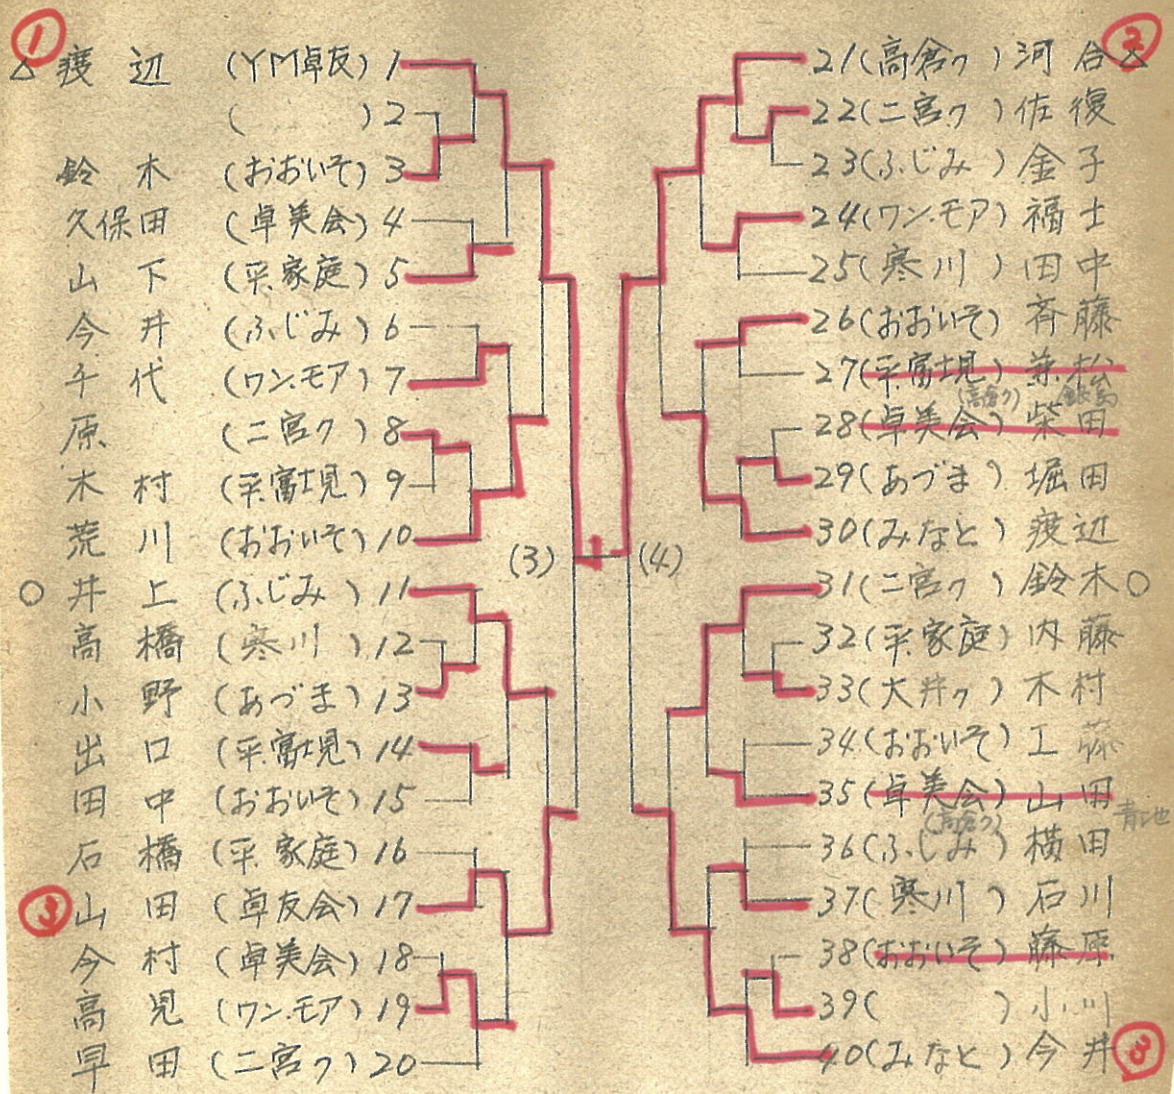 ①
△ 渡辺 (YM卓友) 1
( ) 2
鈴木 (おおいそ) 3
久保田 (卓美会) 4
山下 (平.家庭) 5
今井 (ふじみ) 6
千代 (ワン.モア) 7
原 (二宮ク) 8
木村 (平.富士見) 9
荒川 (おおいそ) 10
○ 井上 (ふじみ) 11
高橋 (寒川) 12
小野 (あづま) 13
出口 (平.富士見) 14
田中 (おおいそ) 15
石橋 (平.家庭) 16
③ 山田 (卓友会) 17
今村 (卓美会) 18
高見 (ワン.モア) 19
早田 (二宮ク) 20
(3) (4)
②
21 (高倉ク) 河合 △
22 (二宮ク) 佐復
23 (ふじみ) 金子
24 (ワン.モア) 福士
25 (寒川) 田中
26 (おおいそ) 斉藤
27 (平.富士見) 兼松
(高倉ク)
28 (卓美会) 柴田
29 (あづま) 堀田
30 (みなと) 渡辺
31 (二宮ク) 鈴木 ○
32 (平.家庭) 内藤
33 (大井ク) 木村
34 (おおいそ) 工藤
35 (卓美会) 山田
(高倉ク) 青池
36 (ふじみ) 横田
37 (寒川) 石川
38 (おおいそ) 藤原
39 ( ) 小川
40 (みなと) 今井 ③